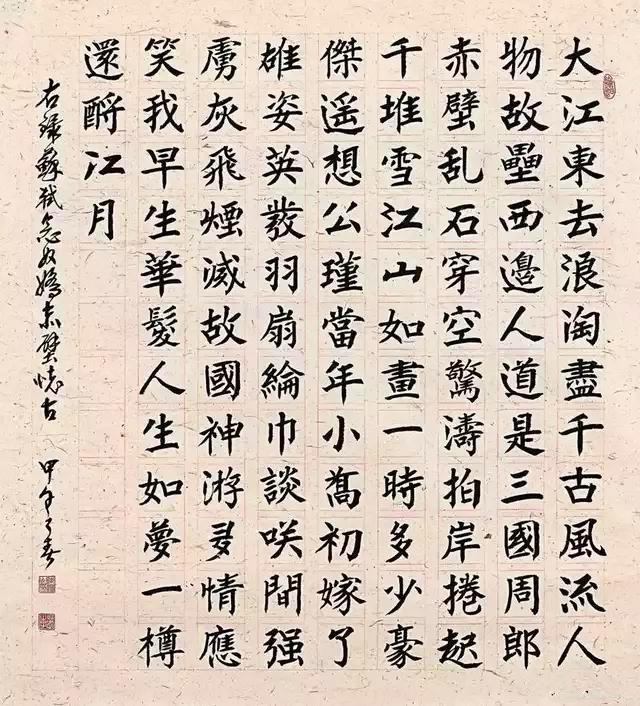 大江東去浪淘盡千古風流人
物故壘西邊人道是三國周郎
赤壁乱石穿空驚濤拍岸捲起
千堆雪江山如畫一時多少豪
傑遥想公瑾當年小喬初嫁了
雄姿英發羽扇綸巾談咲間强
虜灰飛煙滅故國神游多情應
笑我早生華髮人生如夢一樽
還酹江月
右録蘇軾念奴嬌赤壁懷古 甲午之春